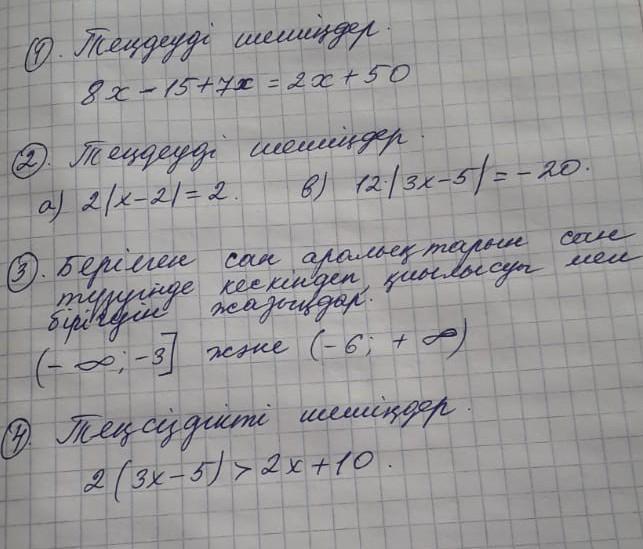 ①. Теңдеуді шешіңдер.
8x - 15 + 7x = 2x + 50
②. Теңдеуді шешіңдер.
а) 2|x - 2| = 2. в) 12·|3x - 5| = - 20.
③. Берілген сан аралықтарын сан
түзуінде кескіндеп, қиылысуы мен
бірігуін жазыңдар.
(- ∞; -3] және (-6; + ∞)
④. Теңсіздікті шешіңдер.
2(3x - 5) > 2x + 10.